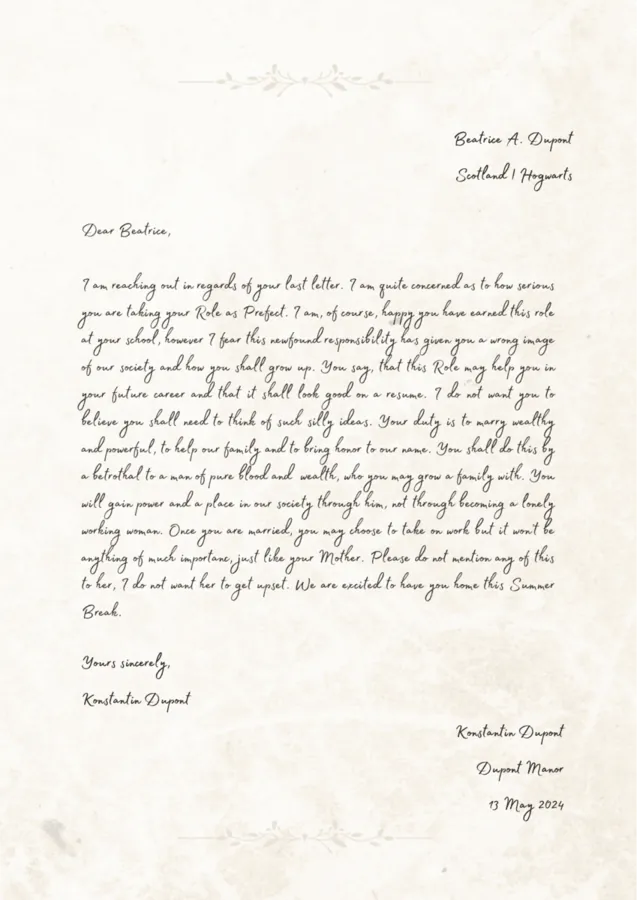 Beatrice A. Dupont
Scotland | Hogwarts
Dear Beatrice,
I am reaching out in regards of your last letter. I am quite concerned as to how serious
you are taking your Role as Prefect. I am, of course, happy you have earned this role
at your school, however I fear this newfound responsibility has given you a wrong image
of our society and how you shall grow up. You say, that this Role may help you in
your future career and that it shall look good on a resume. I do not want you to
believe you shall need to think of such silly ideas. Your duty is to marry wealthy
and powerful, to help our family and to bring honor to our name. You shall do this by
a betrothal to a man of pure blood and wealth, who you may grow a family with. You
will gain power and a place in our society through him, not through becoming a lonely
working woman. Once you are married, you may choose to take on work but it won't be
anything of much importanc, just like your Mother. Please do not mention any of this
to her, I do not want her to get upset. We are excited to have you home this Summer
Break.
Yours sincerely,
Konstantin Dupont
Konstantin Dupont
Dupont Manor
13 May 2024